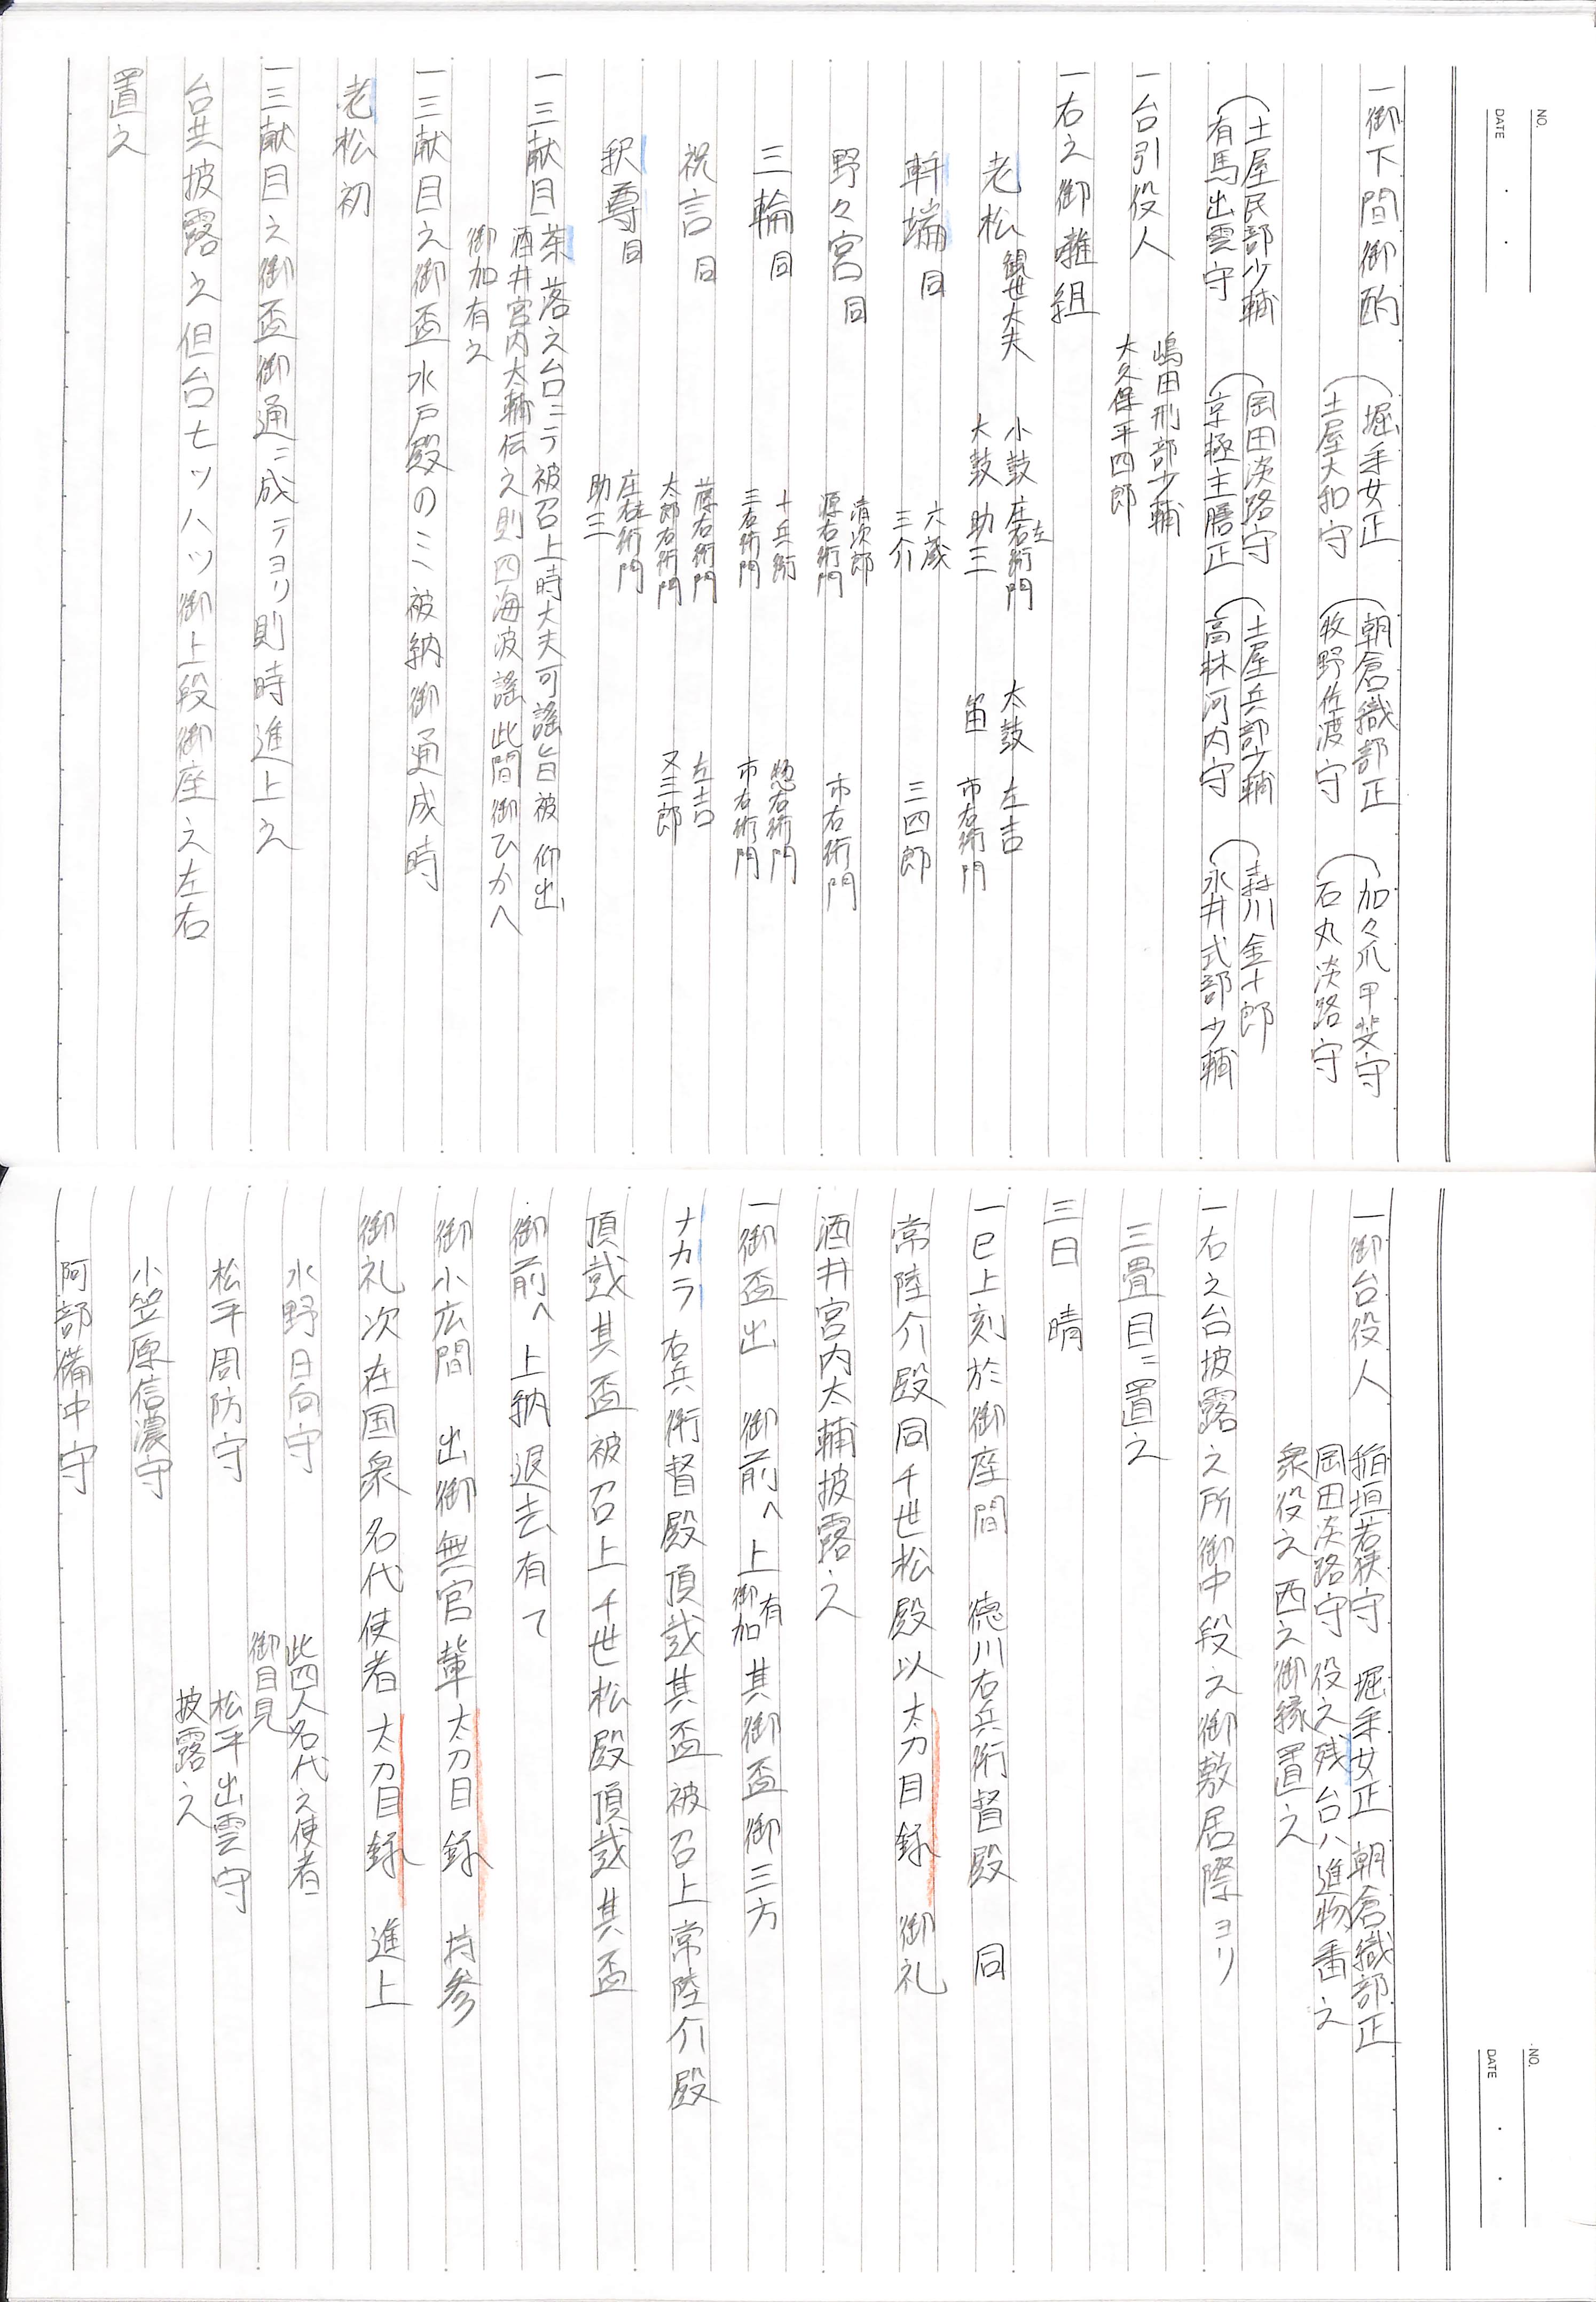 NO.
DATE
一御下間御酌 堀采女正 朝倉織部正 加々爪甲斐守
土屋大和守 牧野佐渡守 石丸淡路守
土屋民部少輔 岡田淡路守 土屋兵部少輔 森川金十郎
有馬出雲守 京極主膳正 高林河内守 永井式部少輔
一台引役人 嶋田刑部少輔
大久保平四郎
一右之御囃組
老松 観世大夫 小鼓 庄右衛門 左 太鼓 左吉
大鼓 助三 笛 市右衛門
軒端 同 六蔵 三介 三四郎
野々宮 同 清次郎 源右衛門 市右衛門
三輪 同 十兵衛 三右衛門 惣右衛門 市右衛門
祝言 同 太郎右衛門 左吉 又三郎
釈尊 同 庄右衛門 左 助三
一三献目 落之台ニテ被召上時大夫可謡旨被 仰出
酒井宮内大輔伝之則四海波謡此間御ひかへ
御加有之
一三献目之御盃水戸殿のミ被納御通成時
老松初
一三献目之御盃御通ニ成テヨリ則時進上之
台共披露之但台七ツハツ御上段御座之左右
置之
NO.
DATE
一御台役人 稲垣若狭守 堀采女正 朝倉織部正
岡田淡路守 役之残台ハ進物番之
衆役之 西之御縁置之
一右之台披露之所御中段之御敷居際ヨリ
三畳目ニ置之
三日 晴
一巳上刻於御座間 徳川右兵衛督殿 同
常陸介殿同千世松殿以太刀目録 御礼
酒井宮内太輔披露之
一御盃出 御前へ上 有御加 其御盃御三方
ナカラ 右兵衛督殿頂戴其盃被召上常陸介殿
頂戴其盃被召上千世松殿頂戴其盃
御前へ上納退去有て
御小広間 出御無官輩太刀目録 持参
御礼次在国衆名代使者太刀目録 進上
水野日向守 此四人名代之使者
御目見
松平周防守 松平出雲守
披露之
小笠原信濃守
阿部備中守